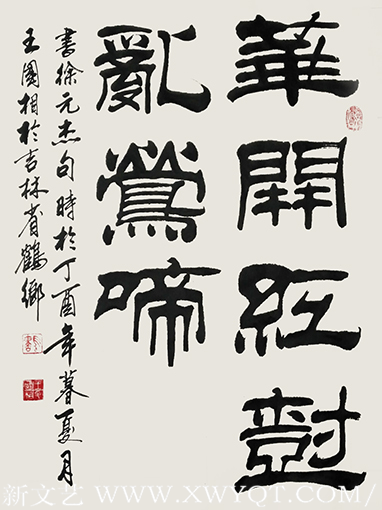 華開紅樹
亂鶯啼
書徐元杰句時於丁酉年暮夏月
王國相於吉林省鶴鄉
新文艺 WWW.XWYQT.COM